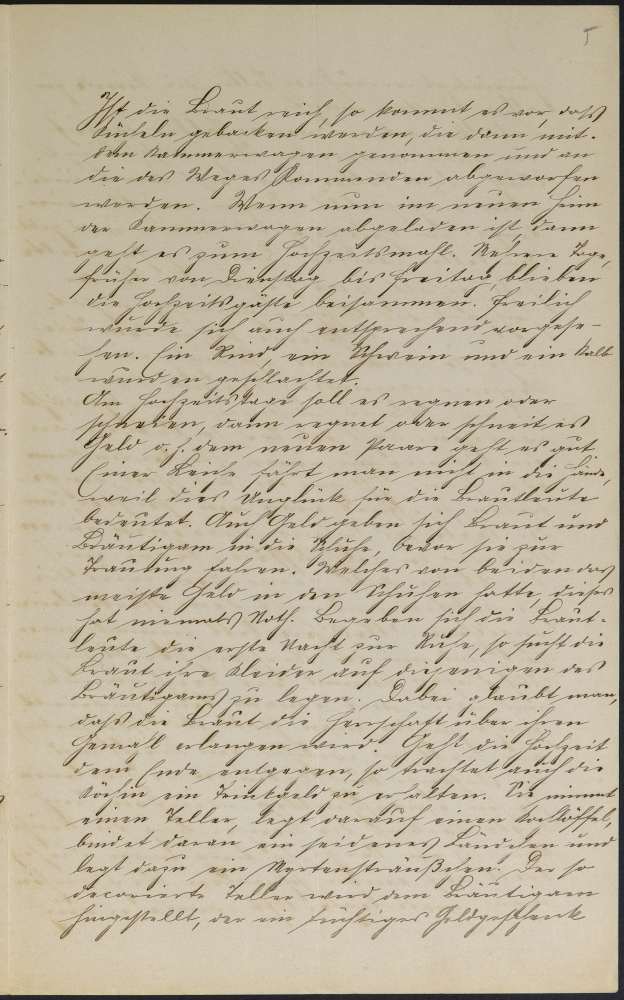 5
Ist die Braut reich, so kommt es vor, dass
Kücheln gebacken werden, die dann mit
dem Kammerwagen genommen und an
die des Weges Kommenden abgeworfen
werden. Wenn nun im neuen Heim
der Kammerwagen abgeladen ist, dann
geht es zum Hochzeitsmahl. Mehrere Tage,
früher von Dienstag bis Freitag, blieben
die Hochzeitsgäste beisammen. Freilich
wurde sich auch entsprechend vorgese-
hen. Ein Rind, ein Schwein und ein Kalb
wurden geschlachtet.
Am Hochzeitstage soll es regnen oder
schneien, dann regnet oder schneit es
Geld d. h. dem neuen Paare geht es gut.
Einer Leiche fährt man nicht in die Hände,
weil dies Unglück für die Brautleute
bedeutet. Auch Geld geben sich Braut und
Bräutigam in die Schuhe, bevor sie zur
Trauung fahren. Welches von beiden das
meiste Geld in den Schuhen hatte, dieses
hat niemals Noth. Begeben sich die Braut-
leute die erste Nacht zur Ruhe, so sucht die
Braut ihre Kleider auf diejenigen des
Bräutigams zu legen. Dabei glaubt man,
dass die Braut die Herrschaft über ihren
Gemahl erlangen wird. Geht die Hochzeit
dem Ende entgegen, so trachtet auch die
Köchin ein Trinkgeld zu erhalten. Sie nimmt
einen Teller, legt darauf einen Kochlöffel,
bindet daran ein seidenes Bändchen und
legt dazu ein Myrtensträußchen. Der so
decorierte Teller wird dem Bräutigam
hingestellt, der ein tüchtiges Geldgeschenk